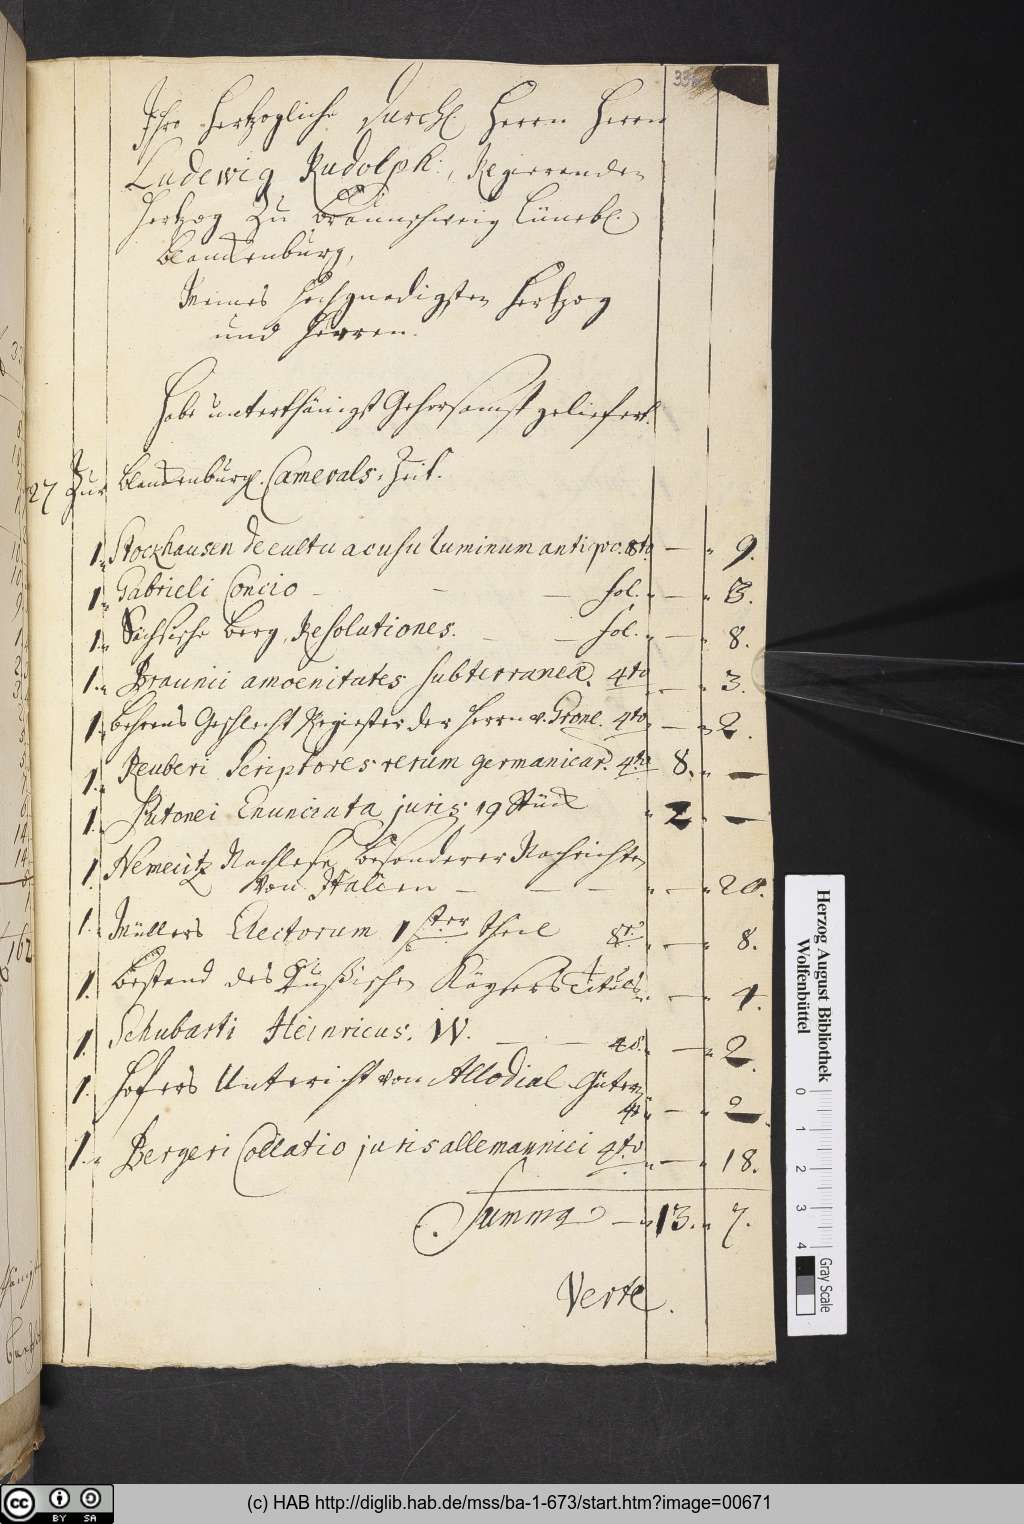 Ihro Hertzogliche Durchl. Herrn Herrn
Ludewig Rudolph:, Regierenden
Hertzog Zu Braunschweig Lünebl.
Blanckenburg,
Meines Hochgnedigsten Hertzog
und Herren.
Habe unterthänigst Gehorsamst geliefert.
27 Zur Blanckenburgl. Carnevals. Zeit.
1. Stockhausen de cultu ac usu Luminum antiquo. 8to — 9.
1. Gabrieli Concio — — — fol. — 3.
1. Sächsische Berg Resolutiones. — — fol. — 8.
1. Braunii amoenitates subterraneæ. 4to — 3.
1. Behrens Geschlecht Register der Herrn v. Grone. 4to — 2.
1. Reuberi Scriptores rerum germanicar. 4to 8. —
1. Putonei Enunciata juris 19 Stück 2 —
1. Nemeitz Nachlese besonderer Nachrichten
von Italien — — — — 20.
1. Müllers Electorum 1ster theil 8° — 8.
1. Bestand des Rußischen Kaysers Tituls — 4.
1. Schubarti Heinricus. IV. — — 4o. — 2.
1. Hofers Unterricht von Allodial Güter
4t — 2
1. Bergeri Collatio juris allemannici 4to — 18.
Summa — 13. 7.
Verte.
Herzog August Bibliothek
Wolfenbüttel
0 1 2 3 4
Gray Scale
(c) HAB http://diglib.hab.de/mss/ba-1-673/start.htm?image=00671
CC BY SA